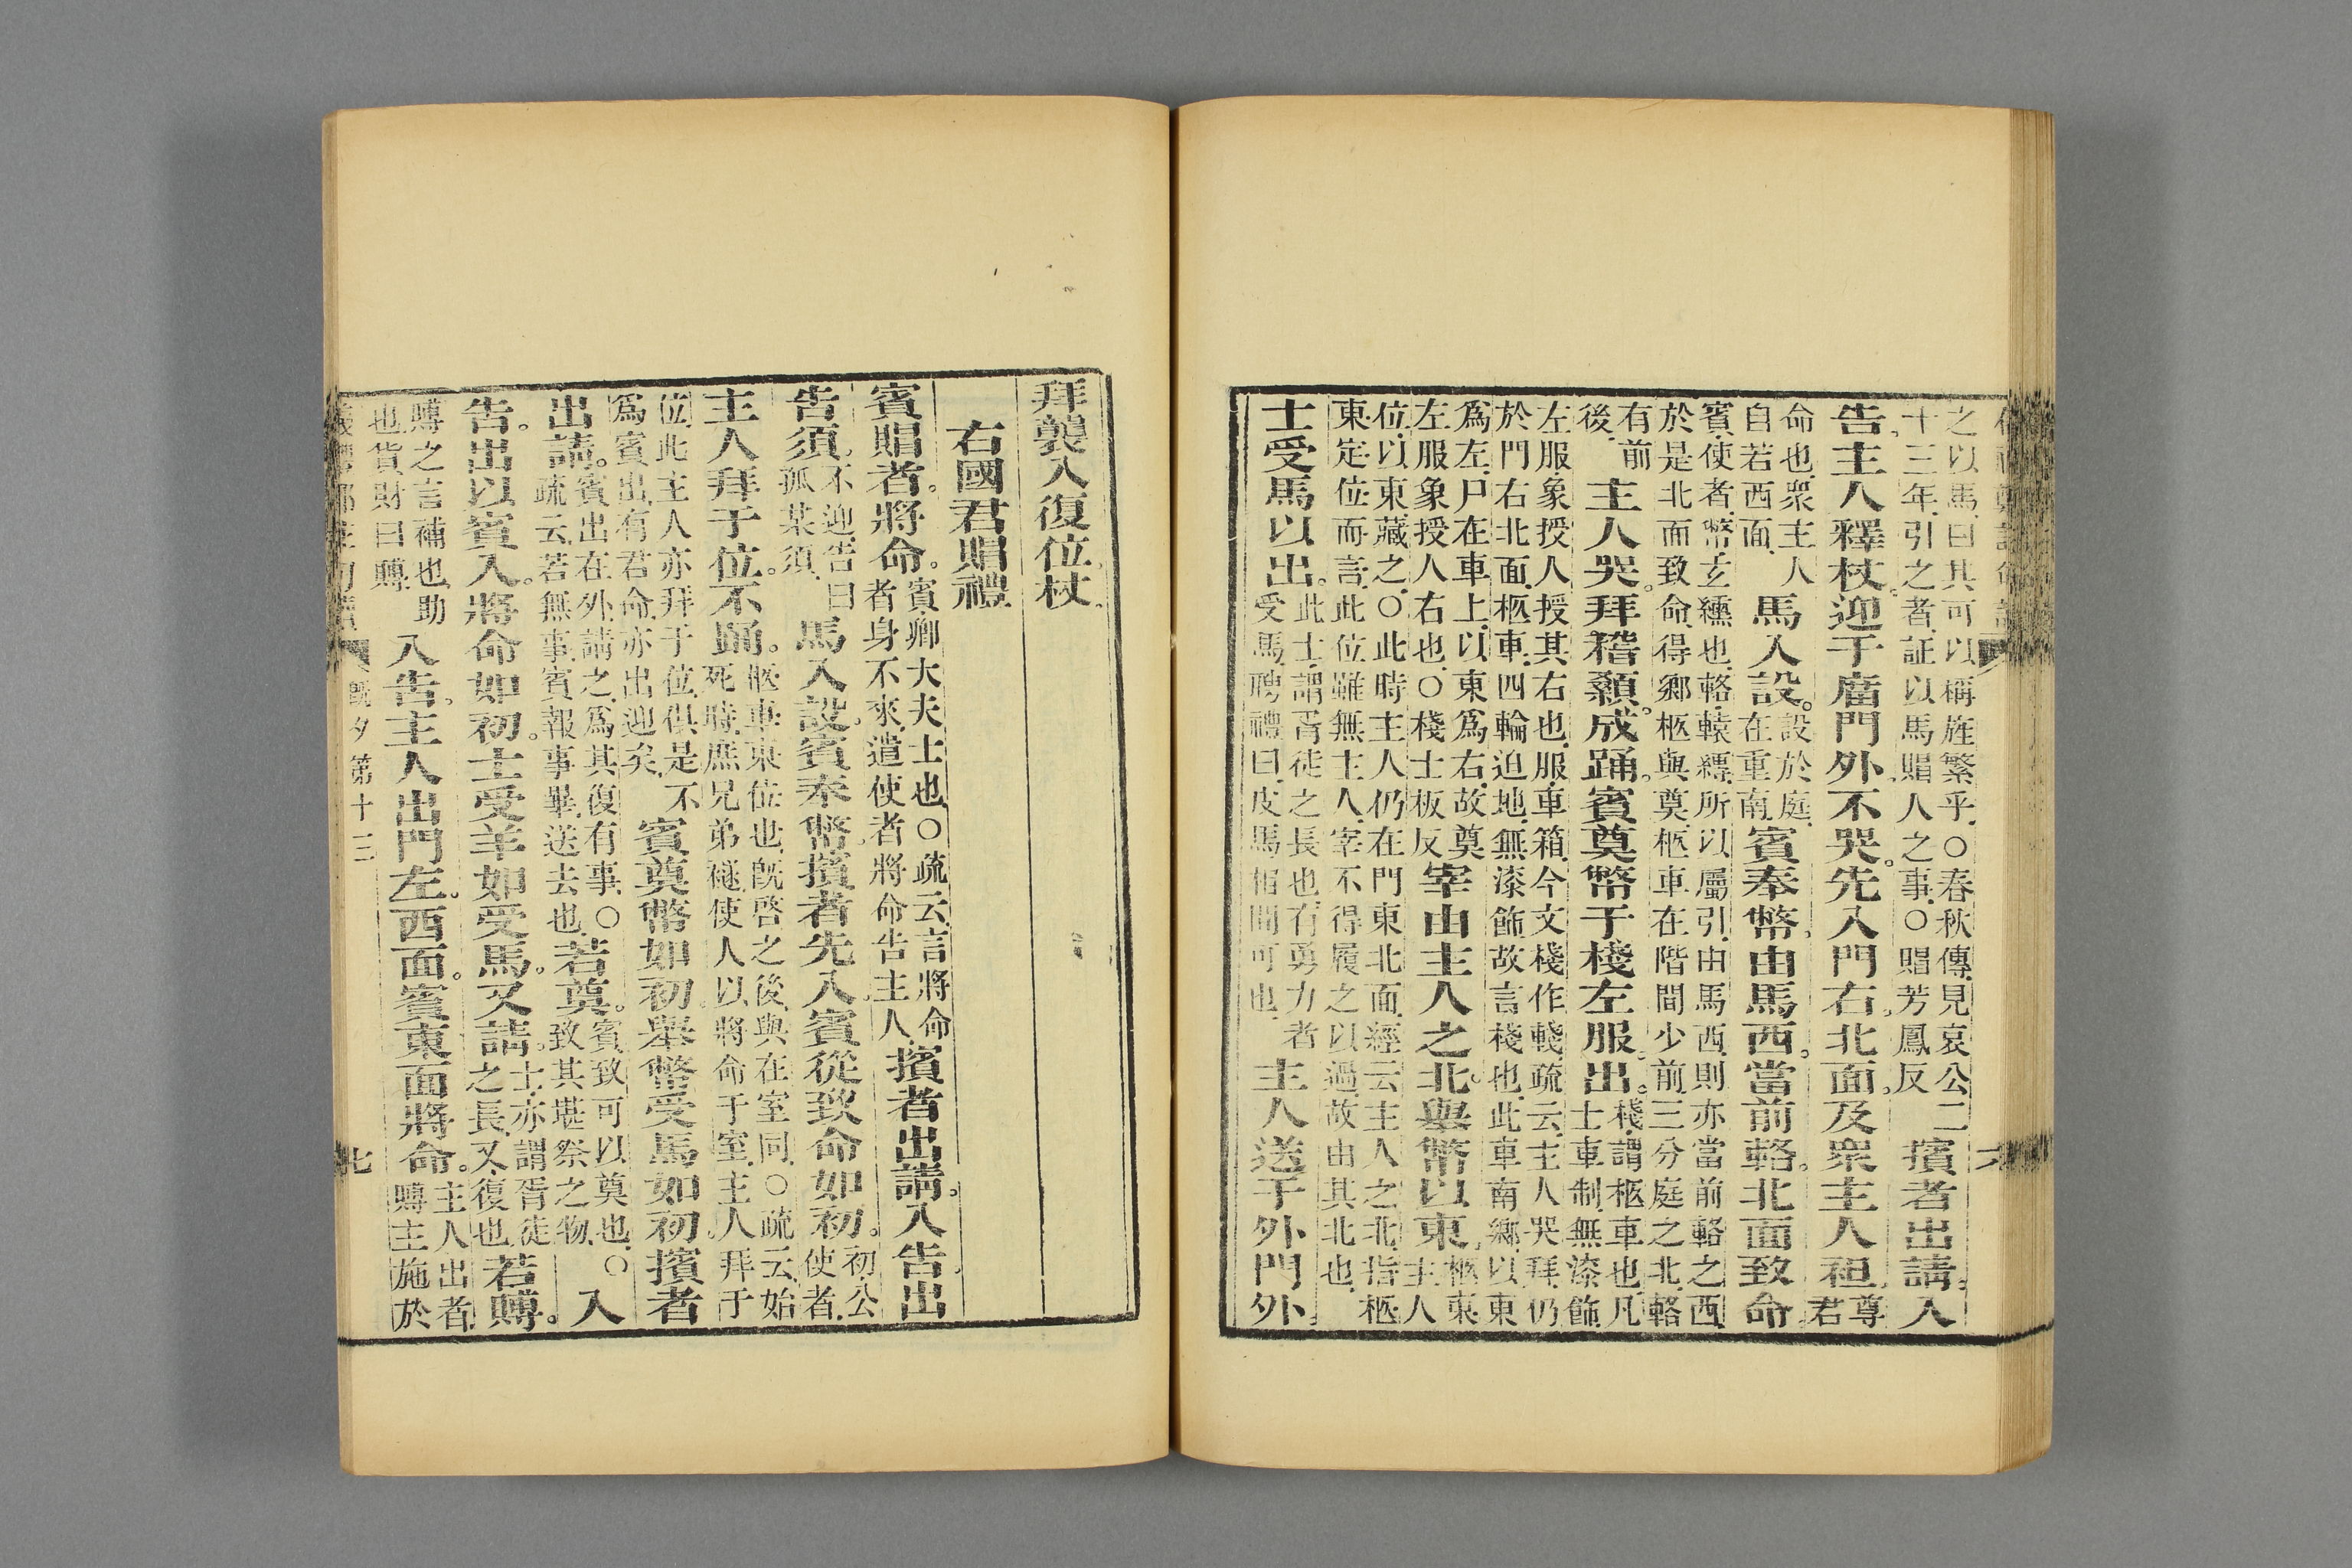 之以馬曰其可以稱旌繁乎○春秋傳見哀公二
十三年引之者証以馬賵人之事○賵芳鳳反
擯者出請入
告主人釋杖迎于廟門外不哭先入門右北面及衆主人袒
尊君
命也衆主人
自若西面
馬入設
設於庭
在重南
賓奉幣由馬西當前輅北面致命
賓使者幣玄纁也輅轅縛所以屬引由馬西則亦當前輅之西
於是北面致命得鄉柩與奠柩車在階間少前三分庭之北輅
有前
後
主人哭拜稽顙成踊賓奠幣于棧左服出
棧謂柩車也凡
士車制無漆飾
左服象授人授其右也服車箱今文棧作輚疏云主人哭拜仍
於門右北面柩車四輪迫地無漆飾故言棧也此車南鄉以東
爲左尸在車上以東爲右故奠
左服象授人右也○棧士板反
宰由主人之北舉幣以東
柩東
主人
位以東藏之○此時主人仍在門東北面經云主人之北指柩
東定位而言此位雖無主人宰不得履之以過故由其北也
士受馬以出
此士謂胥徒之長也有勇力者
受馬聘禮曰皮馬相間可也
主人送于外門外
拜襲入復位杖
右國君賵禮
賓賵者將命
賓卿大夫士也○疏云言將命
者身不來遣使者將命告主人
擯者出請入告出
告須
不迎告曰
孤某須
馬入設賓奉幣擯者先入賓從致命如初
初公
使者
主人拜于位不踊
柩車東位也旣啓之後與在室同○疏云始
死時庶兄弟襚使人以將命于室主人拜于
位此主人亦拜于位俱是不
爲賓出有君命亦出迎矣
賓奠幣如初舉幣受馬如初擯者
出請
賓出在外請之爲其復有事○
疏云若無事賓報事畢送去也
若奠
賓致可以奠也○
致其堪祭之物
入
告出以賓入將命如初士受羊如受馬又請
士亦謂胥徒
之長又復也
若賻
賻之言補也助
也貨財曰賻
入告主人出門左西面賓東面將命
主人出者
賻主施於
旣夕第十三